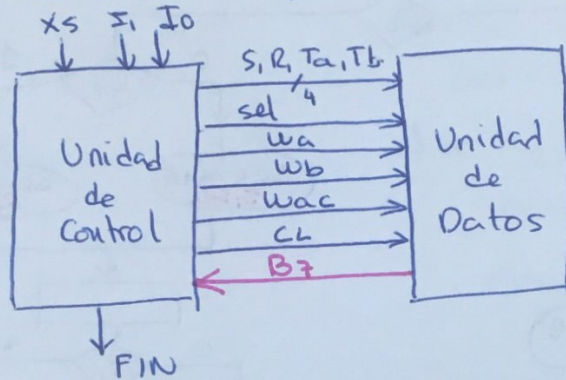 xs I1 I0
S, R, Ta, Tb
4
sel
wa
wb
wac
CL
B7
Unidad
de
Control
Unidad
de
Datos
FIN